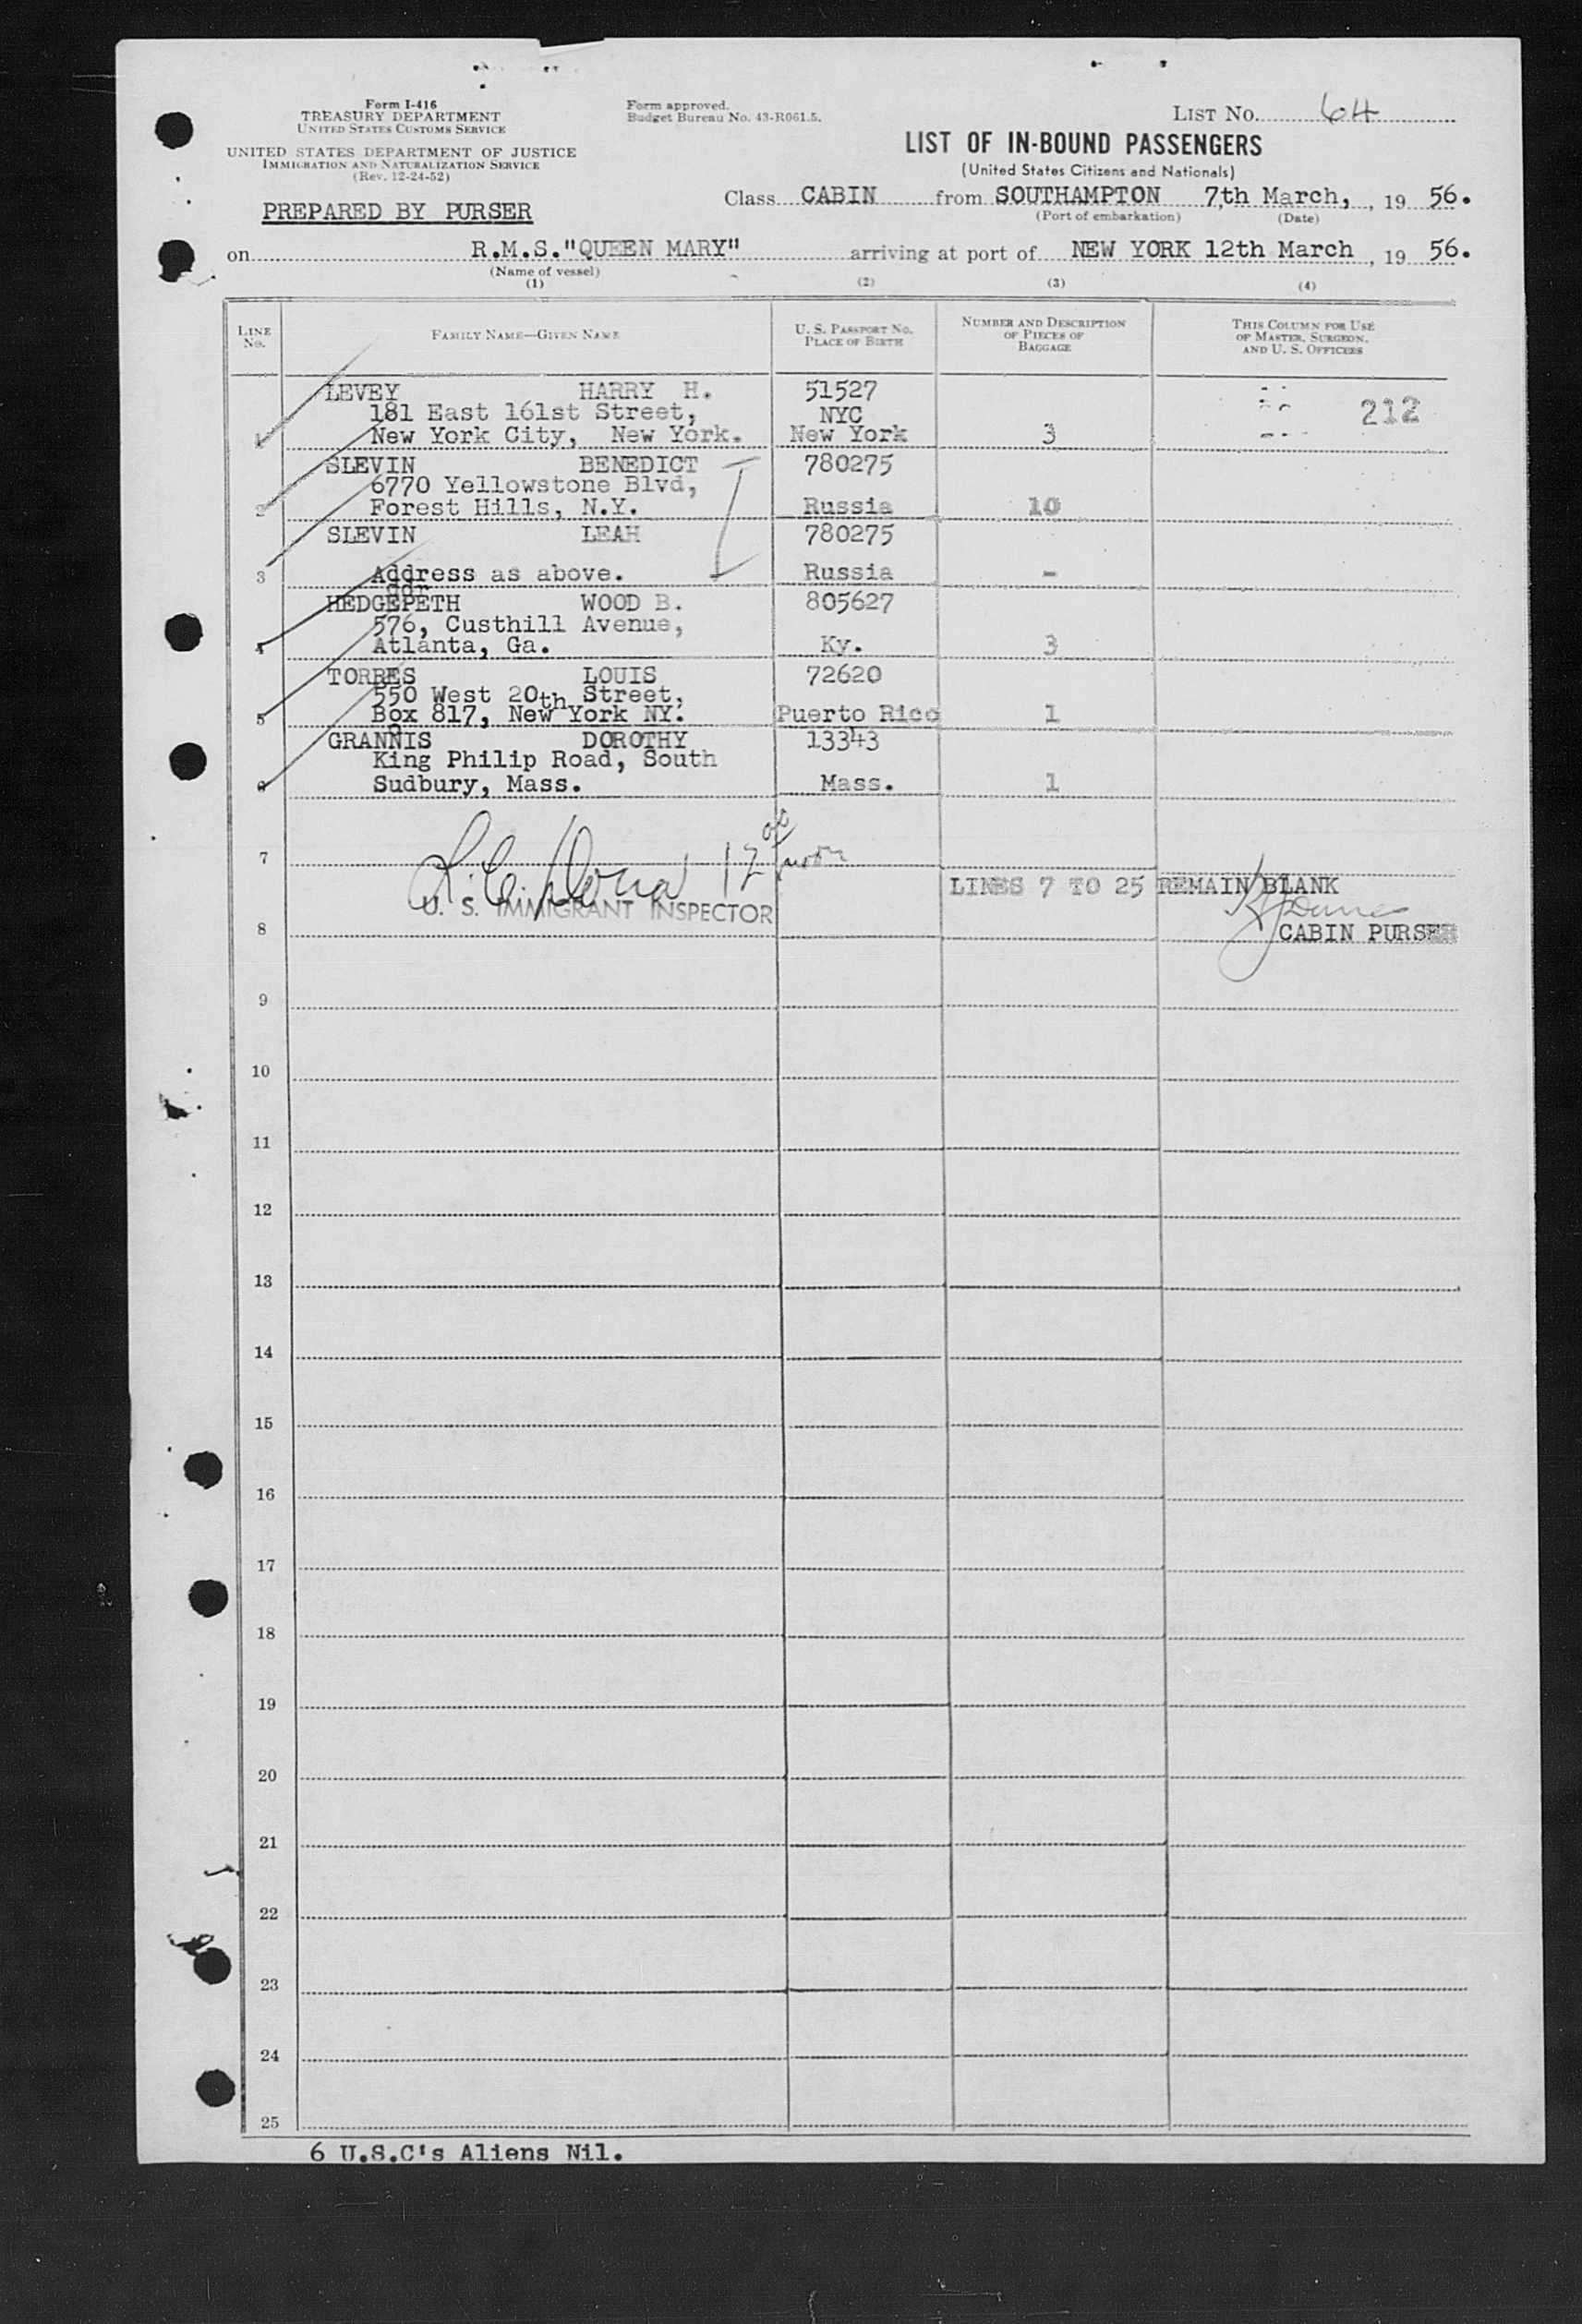 Form I-416
TREASURY DEPARTMENT
UNITED STATES CUSTOMS SERVICE
UNITED STATES DEPARTMENT OF JUSTICE
IMMIGRATION AND NATURALIZATION SERVICE
(Rev. 12-24-52)
PREPARED BY PURSER
Form approved.
Budget Bureau No. 43-R061.5.
LIST No. 64
LIST OF IN-BOUND PASSENGERS
(United States Citizens and Nationals)
Class CABIN from SOUTHAMPTON 7th March, , 19 56.
(Port of embarkation) (Date)
on R.M.S."QUEEN MARY" arriving at port of NEW YORK 12th March , 19 56.
(Name of vessel)
(1) (2) (3) (4)
LINE No. FAMILY NAME—GIVEN NAME U. S. PASSPORT No. PLACE OF BIRTH NUMBER AND DESCRIPTION OF PIECES OF BAGGAGE THIS COLUMN FOR USE OF MASTER, SURGEON, AND U. S. OFFICERS
LEVEY HARRY H. 51527
181 East 161st Street, NYC 212
1 New York City, New York. New York 3
SLEVIN BENEDICT 780275
6770 Yellowstone Blvd,
2 Forest Hills, N.Y. Russia 10
SLEVIN LEAH 780275
3 Address as above. Russia -
HEDGEPETH WOOD B. 805627
576, Custhill Avenue,
4 Atlanta, Ga. Ky. 3
TORRES LOUIS 72620
550 West 20th Street,
5 Box 817, New York NY. Puerto Rico 1
GRANNIS DOROTHY 13343
King Philip Road, South
6 Sudbury, Mass. Mass. 1
12 noon
7
LINES 7 TO 25 REMAIN BLANK
U. S. IMMIGRANT INSPECTOR
8 CABIN PURSER
9
10
11
12
13
14
15
16
17
18
19
20
21
22
23
24
25
6 U.S.C's Aliens Nil.